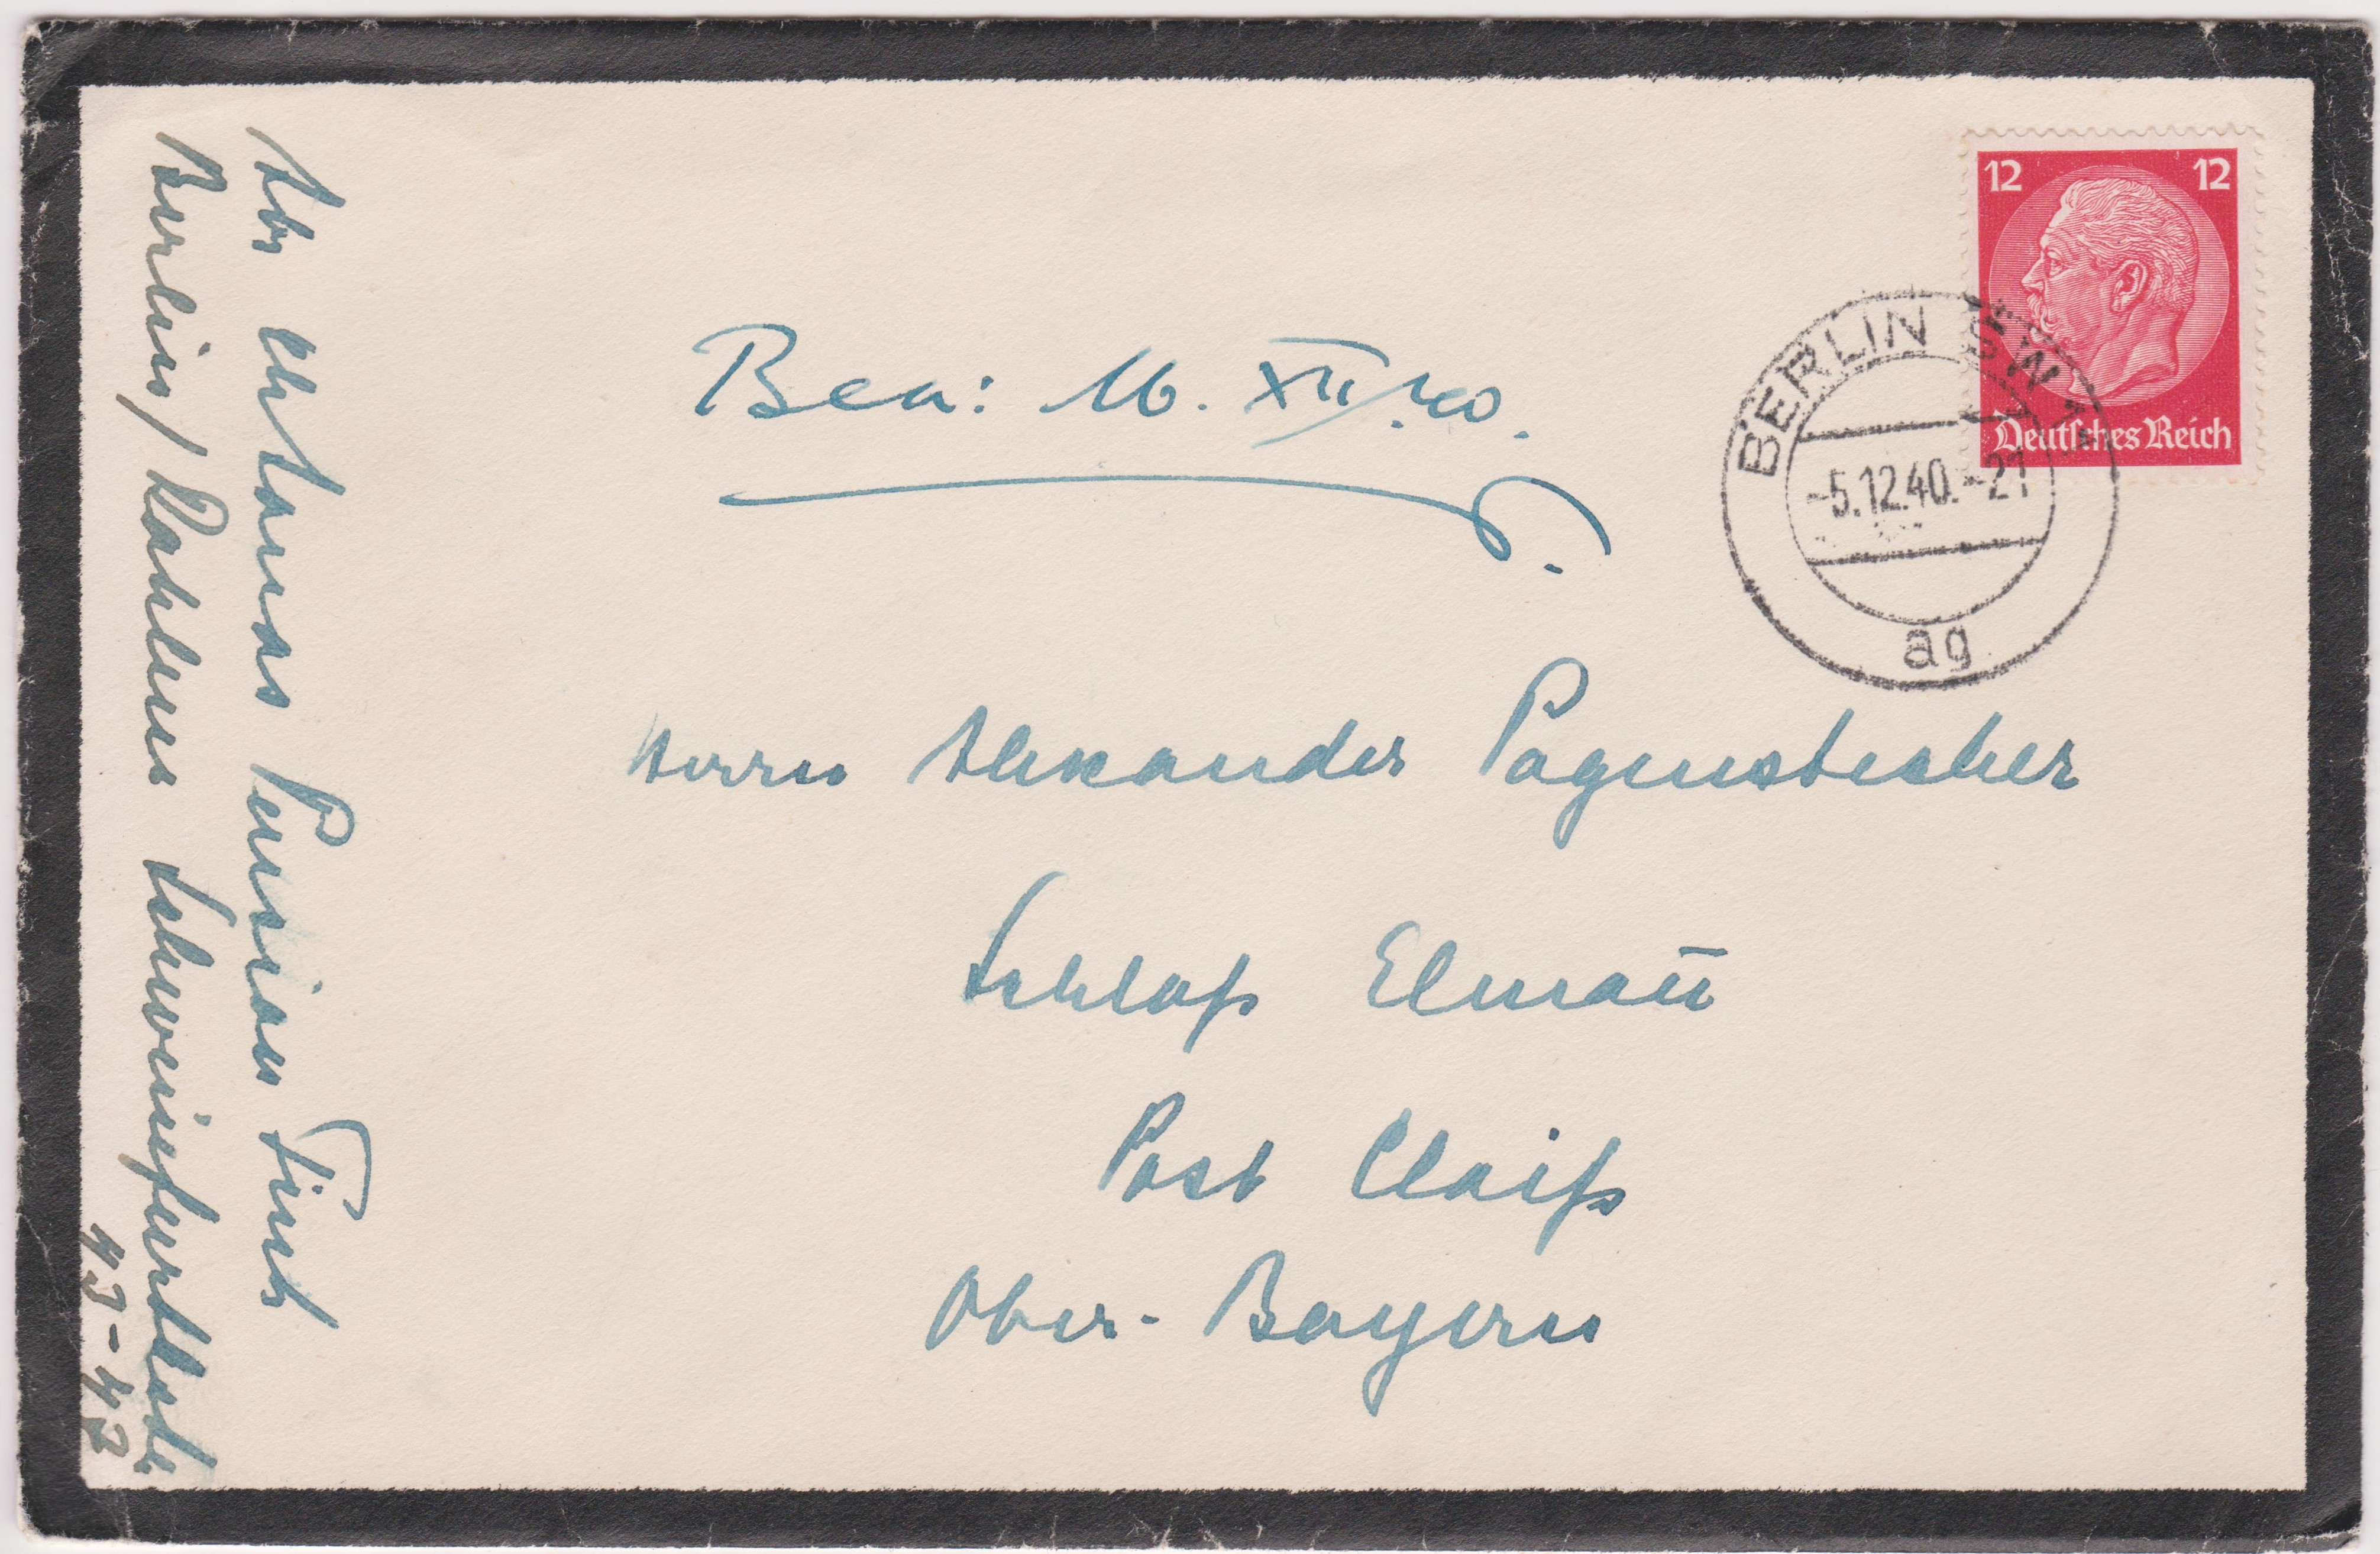 12 12
Deutsches Reich
BERLIN SW
-5.12.40.-21
ag
Bea: 16. XII. 40.
Herrn Alexander Pagenstecher
Schloß Elmau
Post Klais
Ober-Bayern
Pension Finck
Berlin / Dahlem
43-47